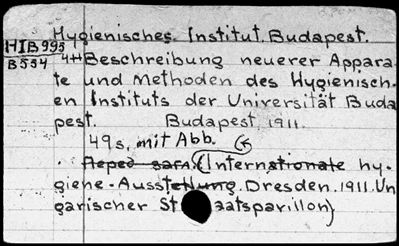 Hygienisches Institut. Budapest.
HIB995
B534
Beschreibung neuerer Appara-
te und Methoden des Hygienisch-
en Instituts der Universität Buda
pest. Budapest, 1911.
49s. mit Abb.
(Internationale hy-
giene-Ausstellung. Dresden. 1911. Un
garischer Staatsparillon)